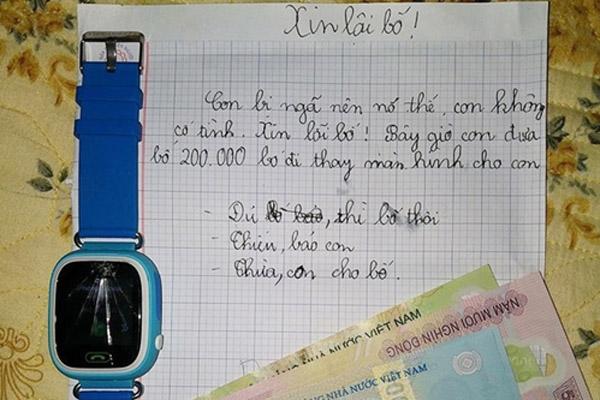 Xin lội bố!
Con bị ngã nên nó thế, con không
cố tình. Xin lỗi bố! Bây giờ con đưa
bố 200.000 bố đi thay màn hình cho con
- Đủ, thì bố thôi
- Thiếu, báo con
- Thừa, con cho bố.
NHÀ NƯỚC VIỆT NAM
NĂM MƯƠI NGHÌN ĐỒNG
NGÂN HÀNG NHÀ NƯỚC VIỆT NAM